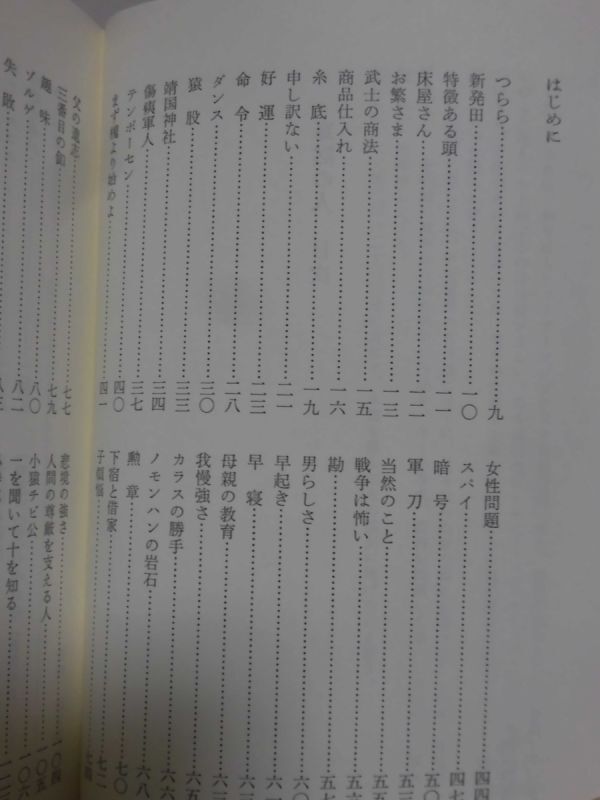 はじめに
つらら……九
新発田……一〇
特徴ある頭……一一
床屋さん……一一
お繁さま……一三
武士の商法……一五
商品仕入れ……一六
糸底……一九
申し訳ない……二一
好運……二三
命令……二八
ダンス……三〇
猿股……三三
靖国神社……三四
傷痍軍人……三七
テンポーセン……四〇
まず隗より始めよ……四一
女性問題……四四
スパイ……四七
暗号……五〇
軍刀……五三
当然のこと……五五
戦争は怖い……
勘……五七
男らしさ……六〇
早起き……六一
早寝……六三
母親の教育……六四
我慢強さ……六五
カラスの勝手……六六
ノモンハンの岩石……六八
勲章……七〇
下宿と借家……七二
子煩悩……七四
父の遺志……七七
三番目の……七九
趣味……八〇
ゾルゲ……八二
失敗……八三
悲境の強さ……一〇四
人間の尊厳を支える人……一〇五
小猿チビ公……一〇六
一を聞いて十を知る……